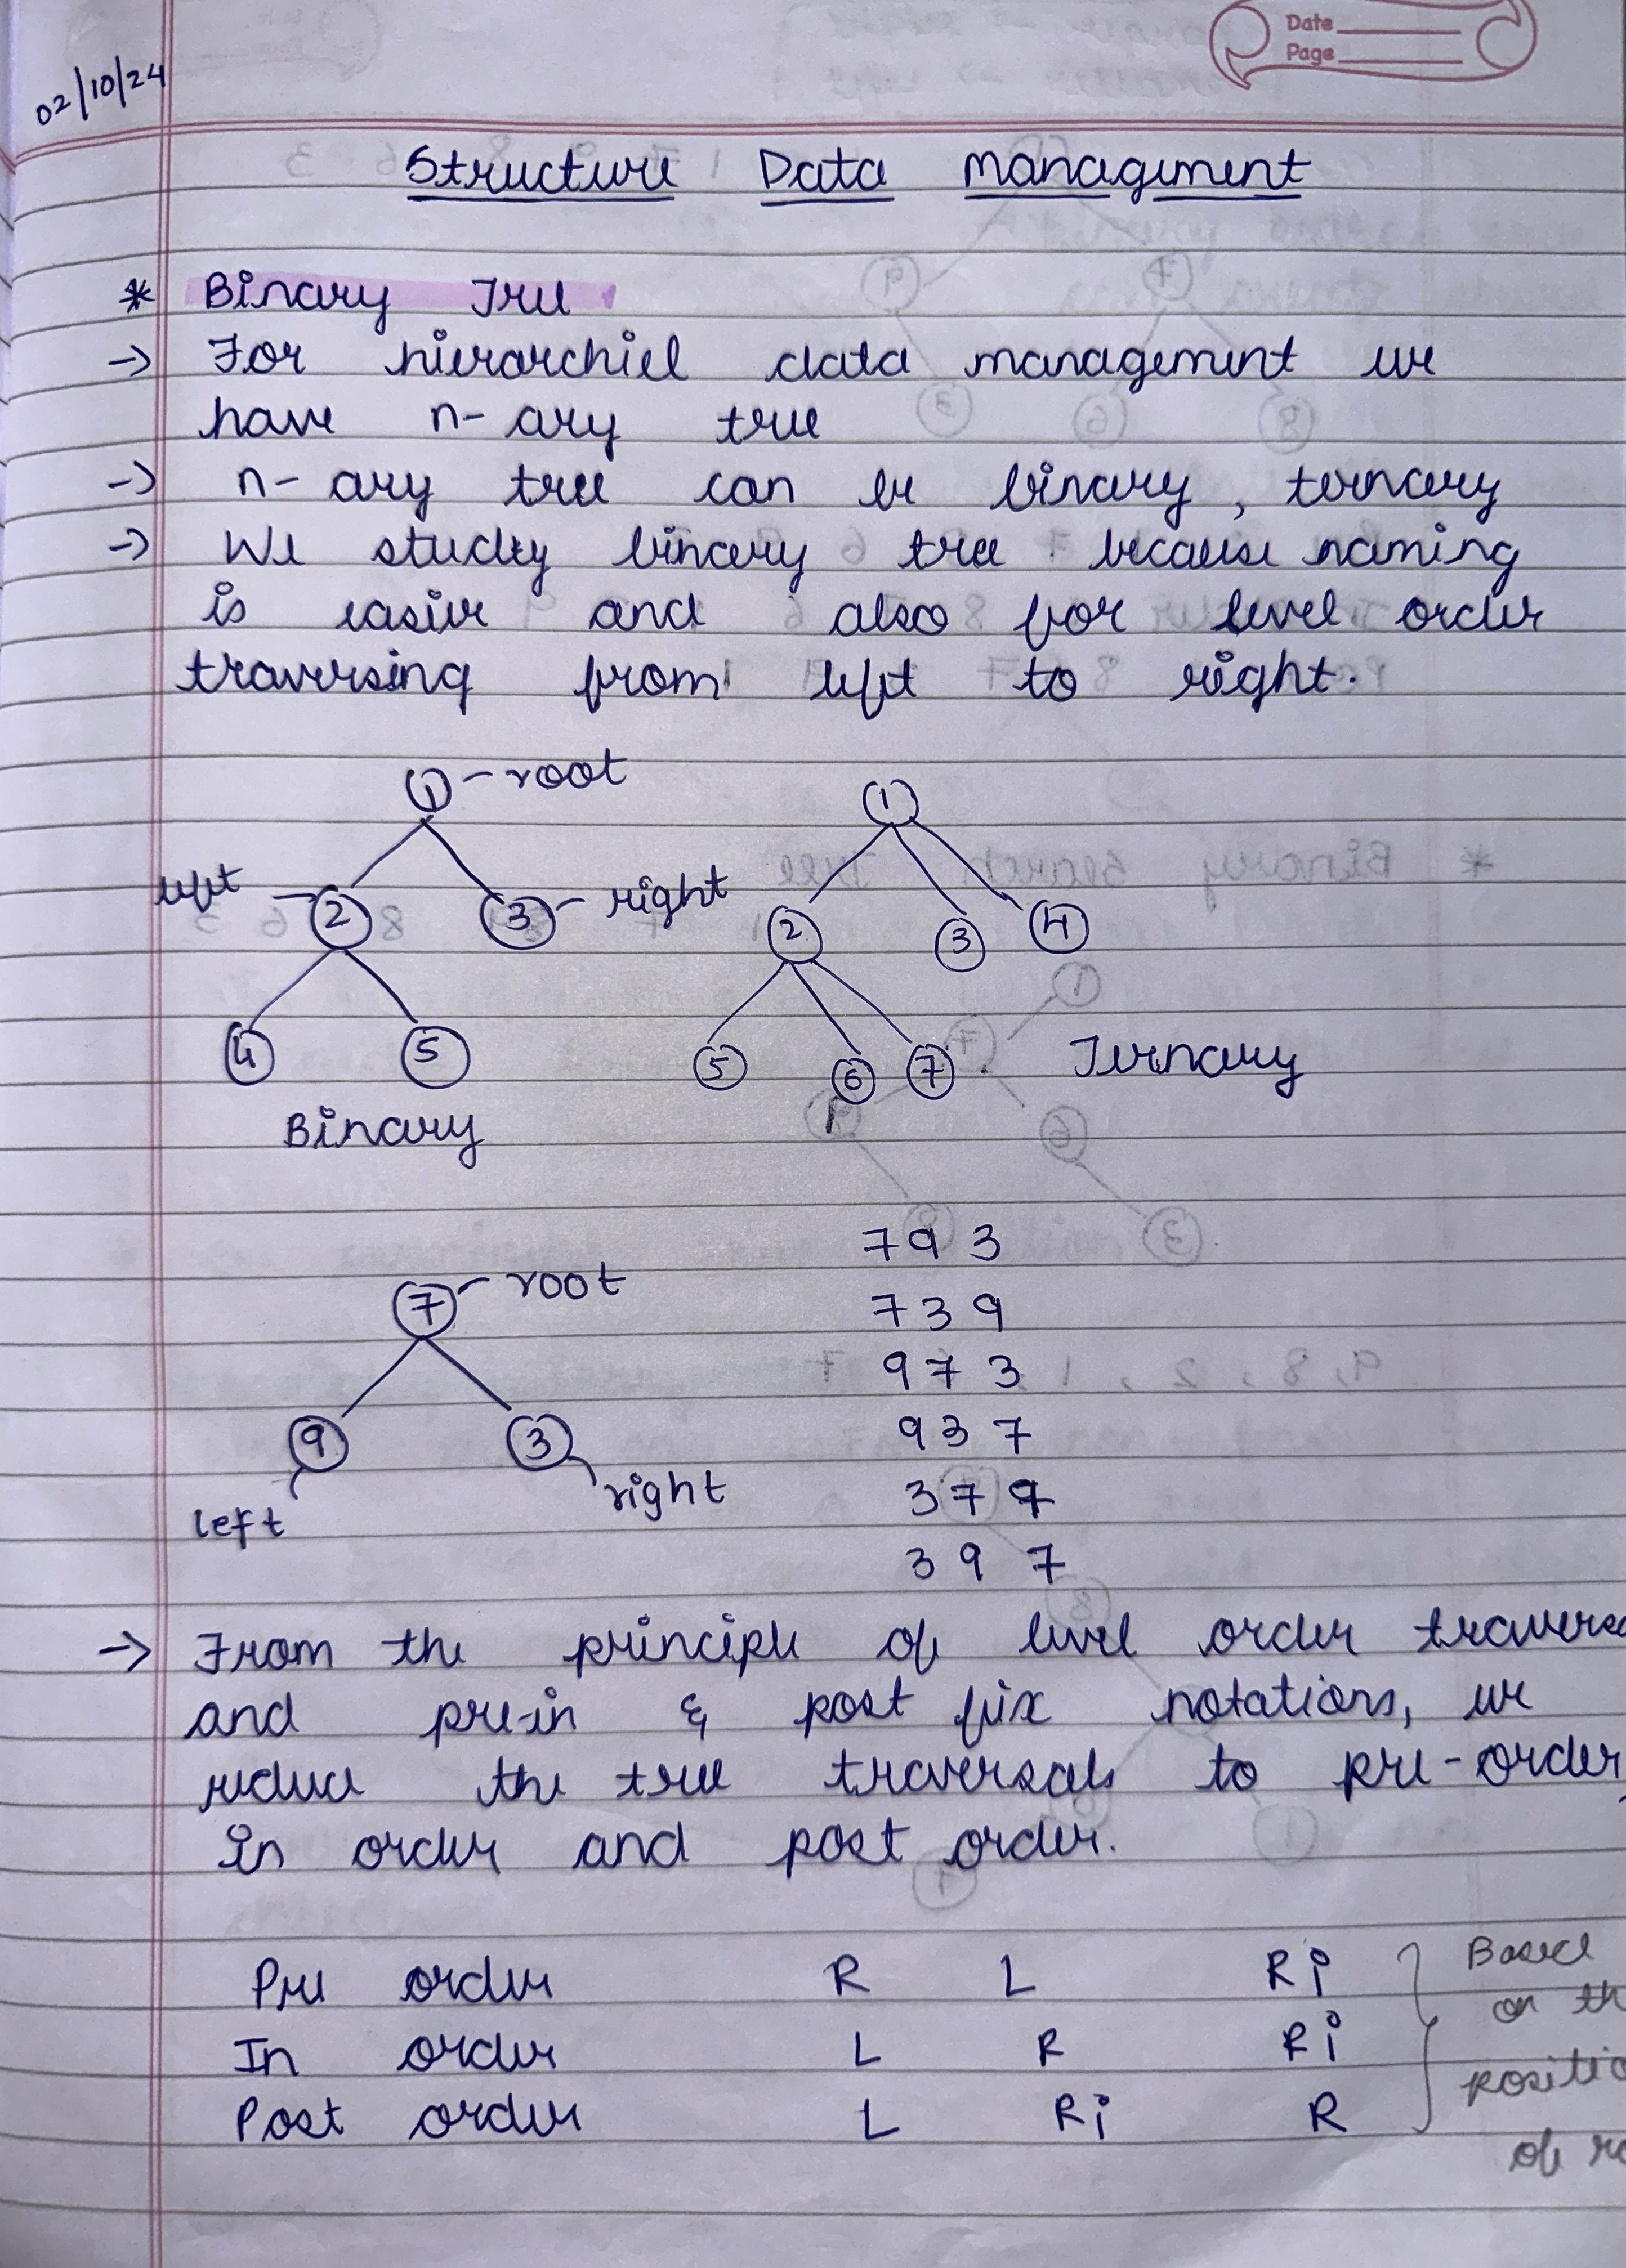 Date
Page
02/10/24
Structure Data Management
* Binary Tree
→ For hierarchiel data management we
have n-ary tree
→ n-ary tree can be binary, ternary
→ We study binary tree because naming
is easier and also for level order
traversing from left to right.
1 - root
1
left - 2
3 - right
2
3
4
4
5
5
6
7
Ternary
Binary
7 9 3
7 - root
7 3 9
9 7 3
9
3
9 3 7
right
3 7 9
left
3 9 7
→ From the principle of level order
and pre-in & post fix notations, we
reduce the tree traversals to pre-order,
In order and post order.
Pre order R L Ri } Based
on
In order L R Ri
Post order L Ri R
of